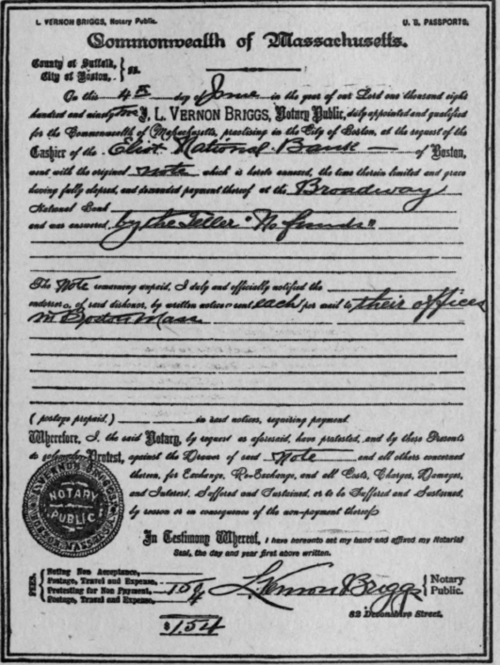 L. VERNON BRIGGS, Notary Public. U. S. PASSPORTS.
Commonwealth of Massachusetts.
County of Suffolk, } ss.
City of Boston, }
On this 4th day of June in the year of our Lord one thousand eight
hundred and ninety two I, L. VERNON BRIGGS, Notary Public, duly appointed and qualified
for the Commonwealth of Massachusetts, practising in the City of Boston, at the request of the
Cashier of the Eliot National Bank of Boston,
went with the original note which is hereto annexed, the time therein limited and grace
having fully elapsed, and demanded payment thereof at the Broadway
National Bank
and was answered, by the Teller "No funds"
The Note remaining unpaid, I duly and officially notified the
endorsers of said dishonor, by written notices sent each per mail to their offices
in Boston Mass
(postage prepaid,) in said notices, requiring payment.
Wherefore, I, the said Notary, by request as aforesaid, have protested, and by these Presents
do solemnly Protest, against the Drawer of said Note and all others concerned
therein, for Exchange, Re-Exchange, and all Costs, Charges, Damages,
and Interest, Suffered and Sustained, or to be Suffered and Sustained,
by reason or in consequence of the non-payment thereof
NOTARY
PUBLIC
In Testimony Whereof, I have hereunto set my hand and affixed my Notarial
Seal, the day and year first above written.
FEES. { Noting Non Acceptance,
Postage, Travel and Expense,
Protesting for Non Payment,
Postage, Travel and Expense,
L. Vernon Briggs } Notary Public.
$1.54
82 Devonshire Street.